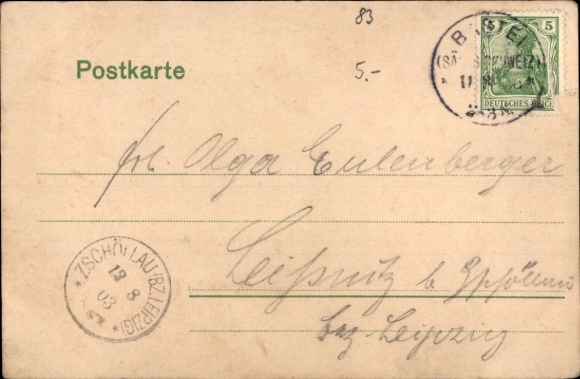 83
5.-
Postkarte
BASTEI
(SÄCHS. SCHWEIZ)
5
DEUTSCHES REICH
Frl. Olga Eulenberger
Leißnitz b Zschöllau
bez Leipzig
* ZSCHÖLLAU (BZ. LEIPZIG) *
12 8
03